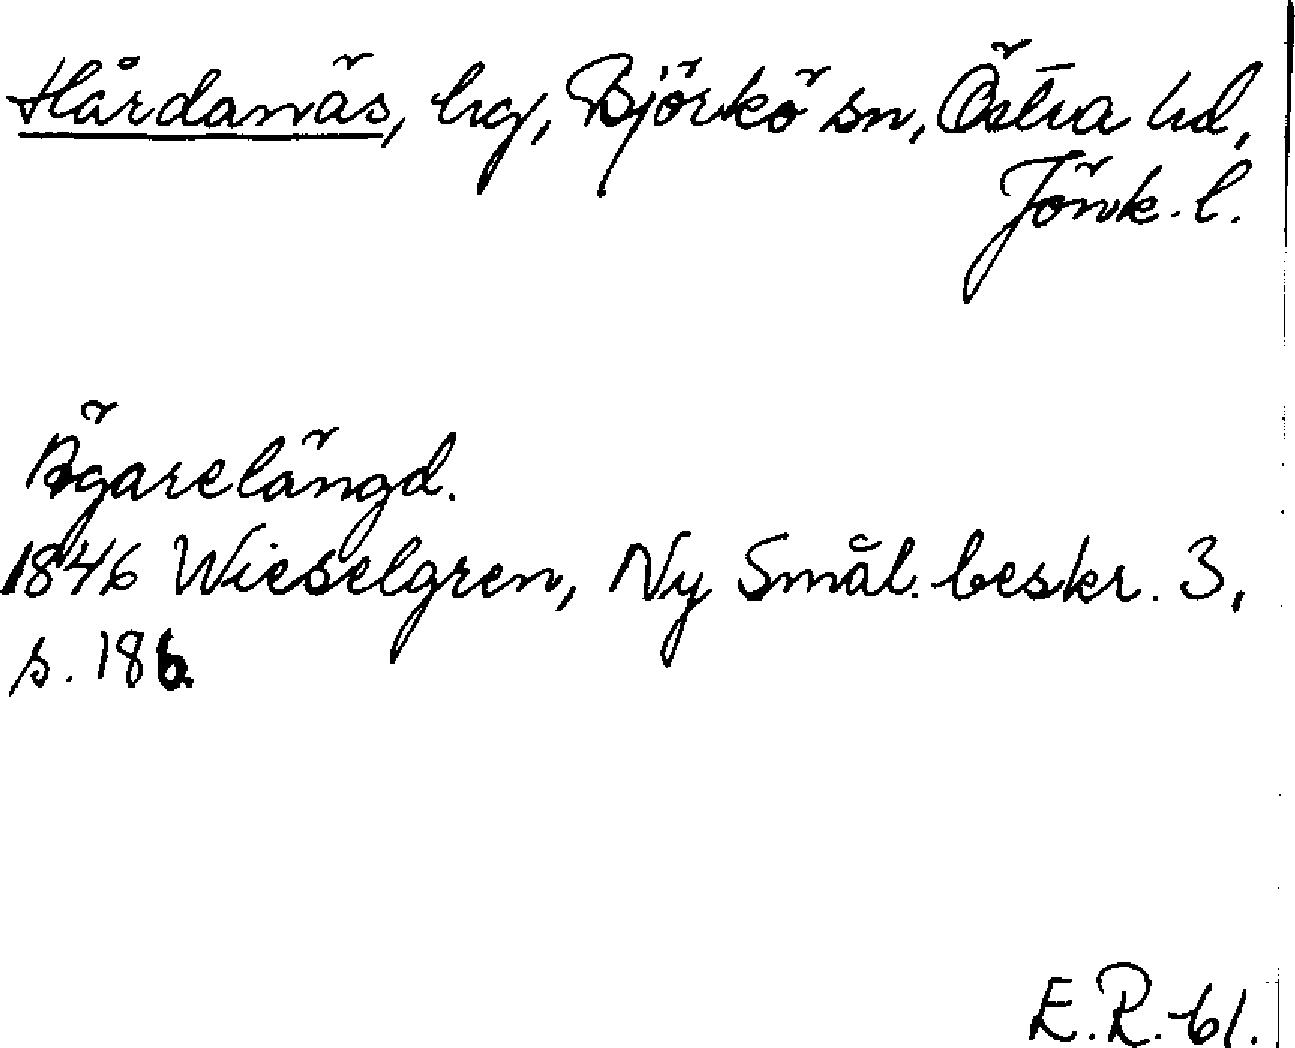 Hårdanäs, hg, Björkö sn, Östra hd,
Jönk. l.
Ägarelängd.
1846 Wieselgren, Ny Smål. beskr. 3,
s. 186.
E.R. 61.